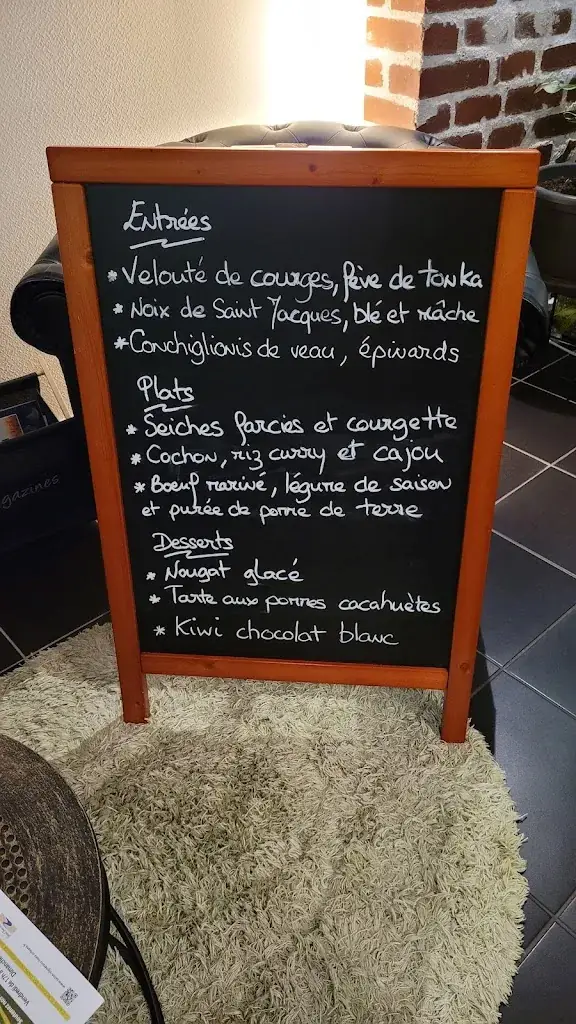 Entrées
* Velouté de courges, fève de tonka
* Noix de Saint Jacques, blé et mâche
* Conchiglionis de veau, épinards
Plats
* Seiches farcies et courgette
* Cochon, riz curry et cajou
* Boeuf mariné, légume de saison
et purée de pomme de terre
Desserts
* Nougat glacé
* Tarte aux pommes cacahuètes
* Kiwi chocolat blanc
gazines